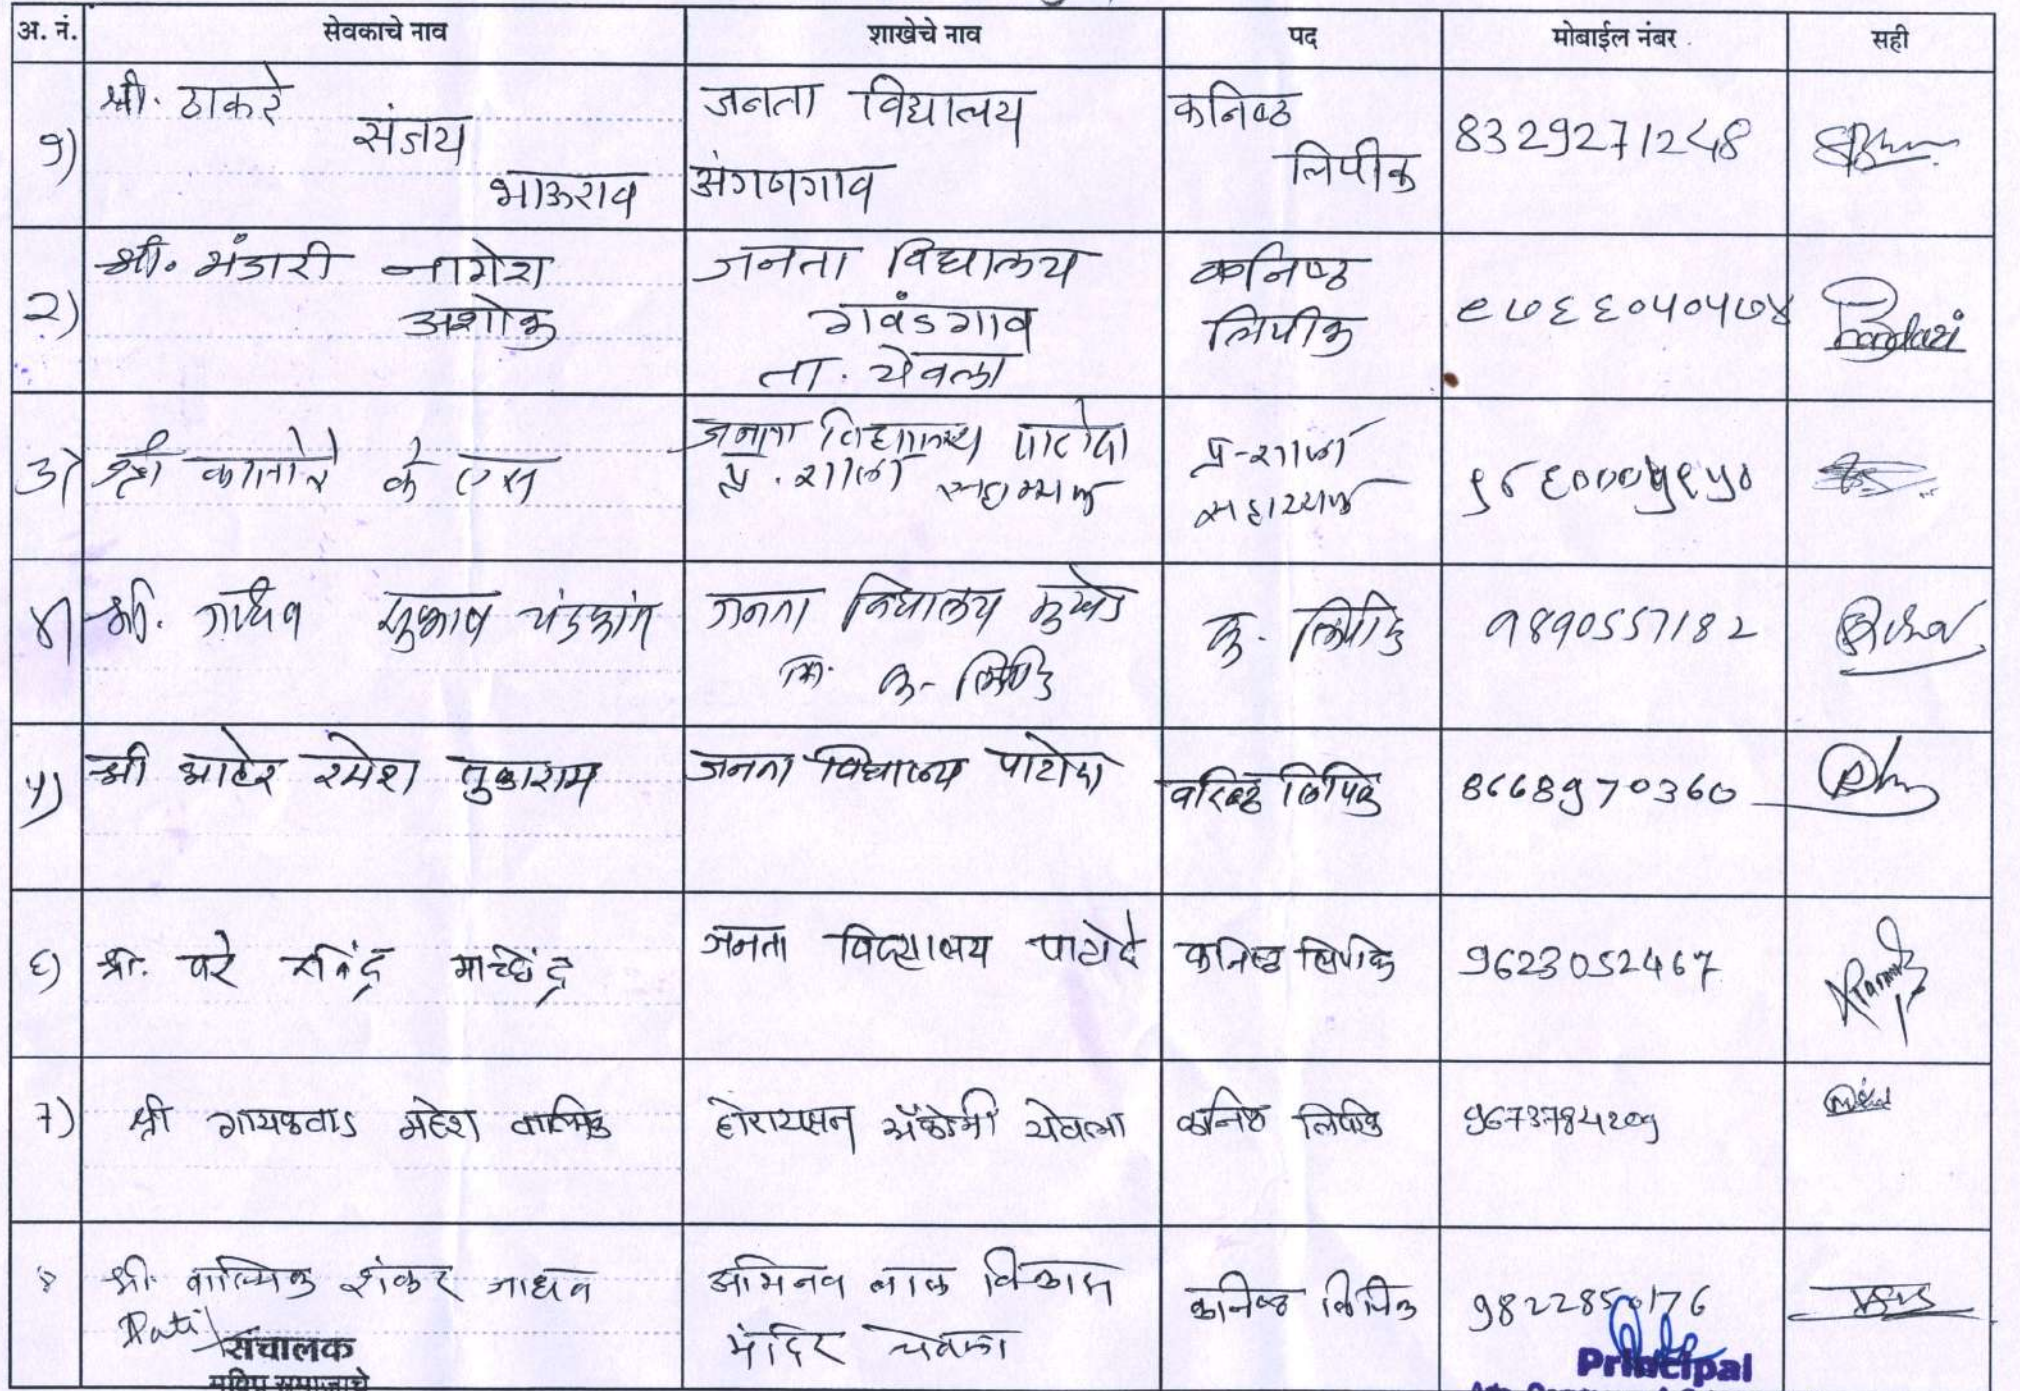 अ. नं. सेवकाचे नाव शाखेचे नाव पद मोबाईल नंबर सही
१) श्री. ठाकरे संजय भाऊराव जनता विद्यालय अंगणगाव कनिष्ठ लिपीक 8329271248
२) श्री. भंडारी नागेश अशोक जनता विद्यालय गवंडगाव ता. येवला कनिष्ठ लिपीक ९७६६०५०५७४ Bhandari
३) श्री के एस जनता विद्यालय पाटोदा प्र. शाळा सहाय्यक प्र-शाळा सहाय्यक
४) श्री. जाधव सुभाष चंद्रकांत जनता विद्यालय मुखेड क. लिपिक क. लिपिक 9890557182
५) श्री आहेर रमेश तुकाराम जनता विद्यालय पाटोदा वरिष्ठ लिपिक 8668970360
६) श्री. वरे रविंद्र मच्छिंद्र जनता विद्यालय पाटोदे कनिष्ठ लिपिक 9623052467
7) श्री गायकवाड महेश वाल्मिक होरायझन अॅकेडमी येवला कनिष्ठ लिपिक 9673784209
८ श्री. वाल्मिक शंकर जाधव अभिनव बाल विकास मंदिर येवला कनिष्ठ लिपिक 9822850176
Patil
संचालक
मविप्र समाजाचे
Principal